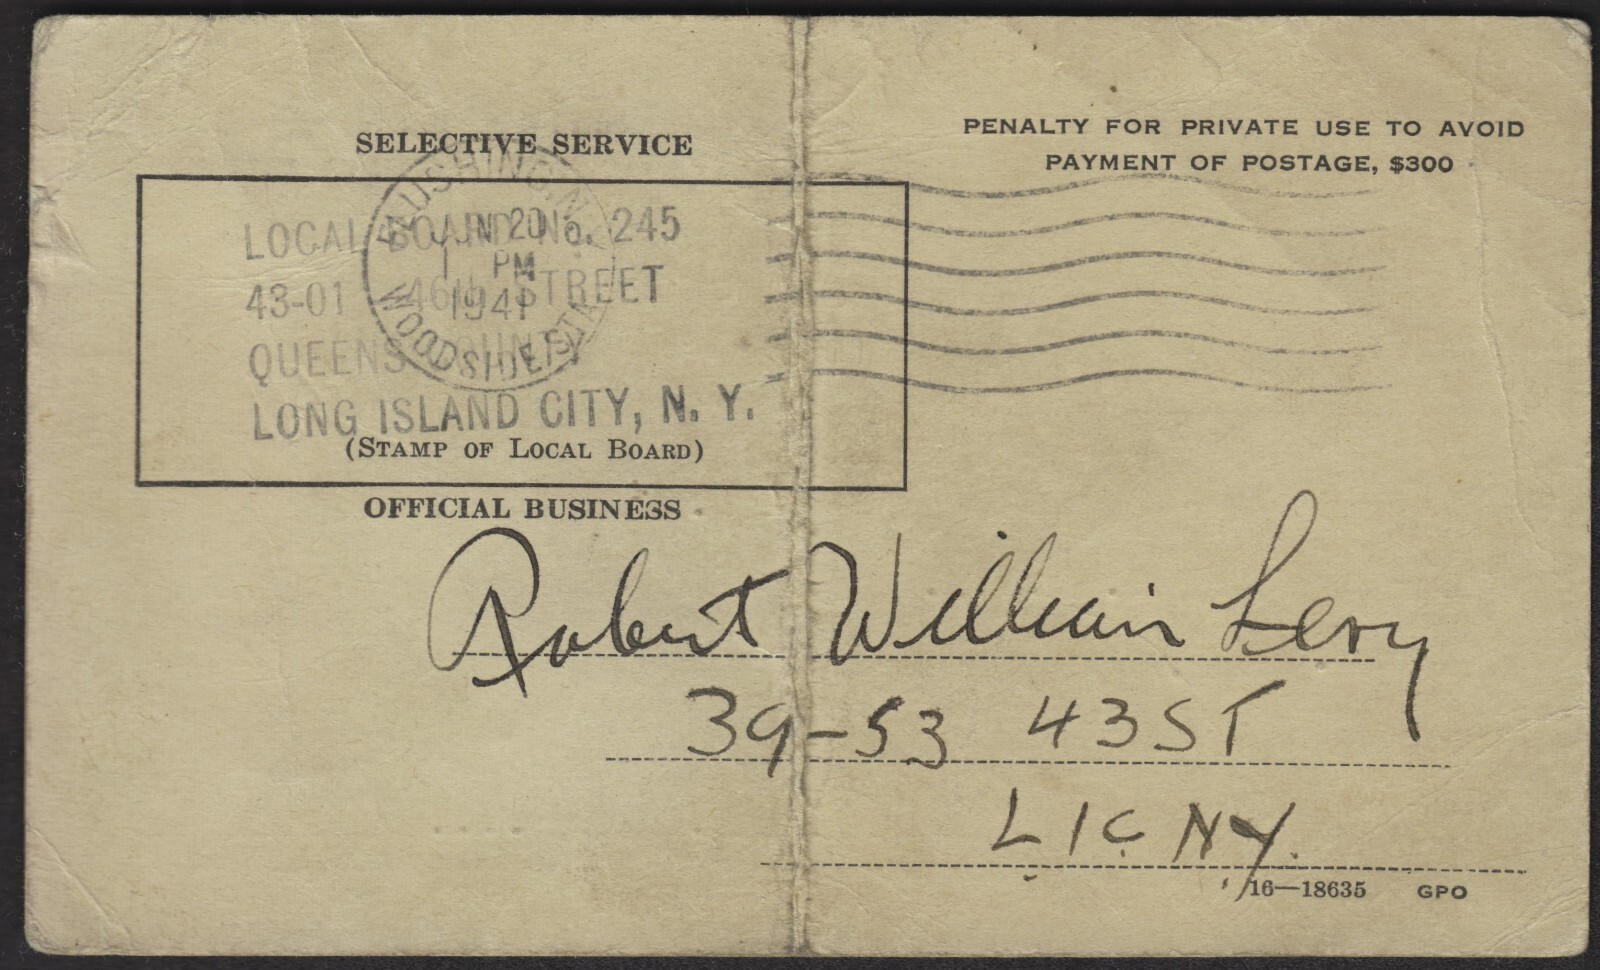 SELECTIVE SERVICE
PENALTY FOR PRIVATE USE TO AVOID
PAYMENT OF POSTAGE, $300
LOCAL BOARD No. 245
43-01 46th STREET
QUEENS COUNTY
LONG ISLAND CITY, N. Y.
FLUSHING N.Y.
JUN 20
1 PM
1941
WOODSIDE STA.
(STAMP OF LOCAL BOARD)
OFFICIAL BUSINESS
Robert William Levy
39-53 43 ST
L I C NY.
16—18635 GPO